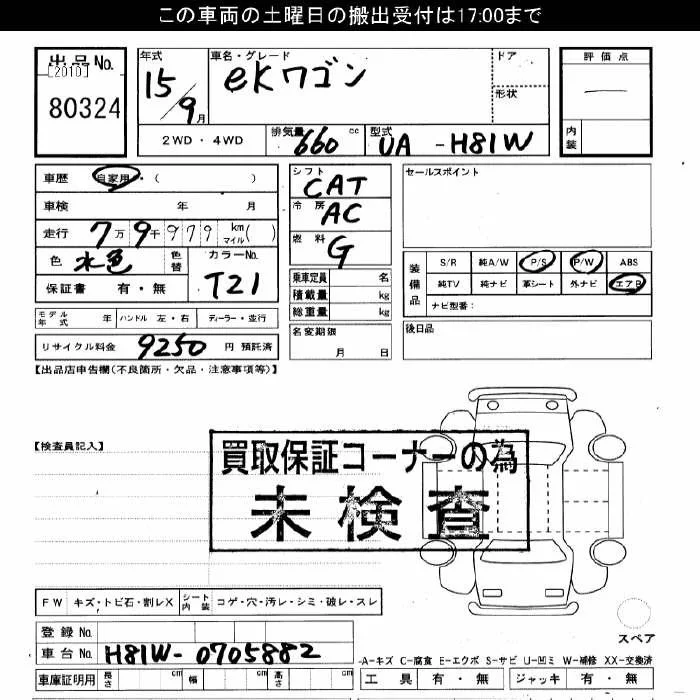 この車両の土曜日の搬出受付は17:00まで
出品No.
[2010]
80324
年式
15/9月
車名・グレード
eKワゴン
ドア
形状
評価点
内装
2WD・4WD
排気量 660 cc
型式 UA -H81W
車歴 自家用・( )
車検 年 月
走行 7万9千979km マイル( )
色 水色 色替
カラーNo. T21
保証書 有・無
シフト CAT
冷房 AC
燃料 G
セールスポイント
装備品
S/R 純A/W P/S P/W ABS
純TV 純ナビ 革シート 外ナビ エアB
ナビ型番:
乗車定員 名
積載量 kg
総重量 kg
モデル年式 年 ハンドル 左・右 ディーラー・並行
名変期限 月 日
後日品
リサイクル料金 9250 円 預託済
【出品店申告欄(不良箇所・欠品・注意事項等)】
【検査員記入】
買取保証コーナーの為
未検査
FW キズ・トビ石・割レX
シート内装 コゲ・穴・汚レ・シミ・破レ・スレ
スペア
登録No.
車台No. H81W-0705882
車庫証明用 長さ cm 幅 cm 高さ cm
-A-キズ C-腐食 E-エクボ S-サビ U-凹ミ W-補修 XX-交換済
工具 有・無 ジャッキ 有・無